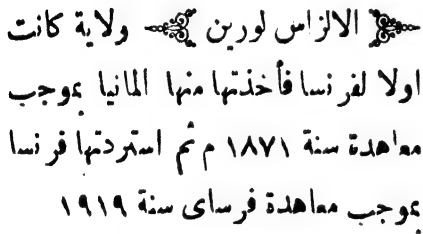 الالزاس لورين ولاية كانت
اولا لفرنسا فأخذتها منها المانيا بموجب
معاهدة سنة ١٨٧١ م ثم استردتها فرنسا
بموجب معاهدة فرساى سنة ١٩١٩